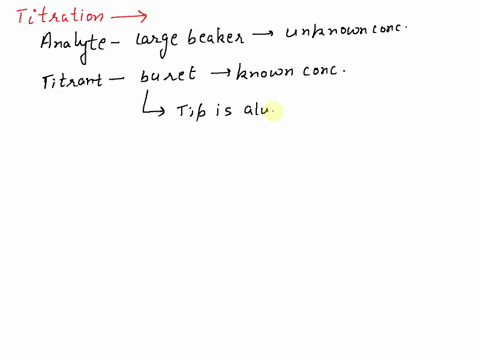 Titration →
Analyte - large beaker → unknown conc.
Titrant - buret → known conc.
↳ Tip is alw